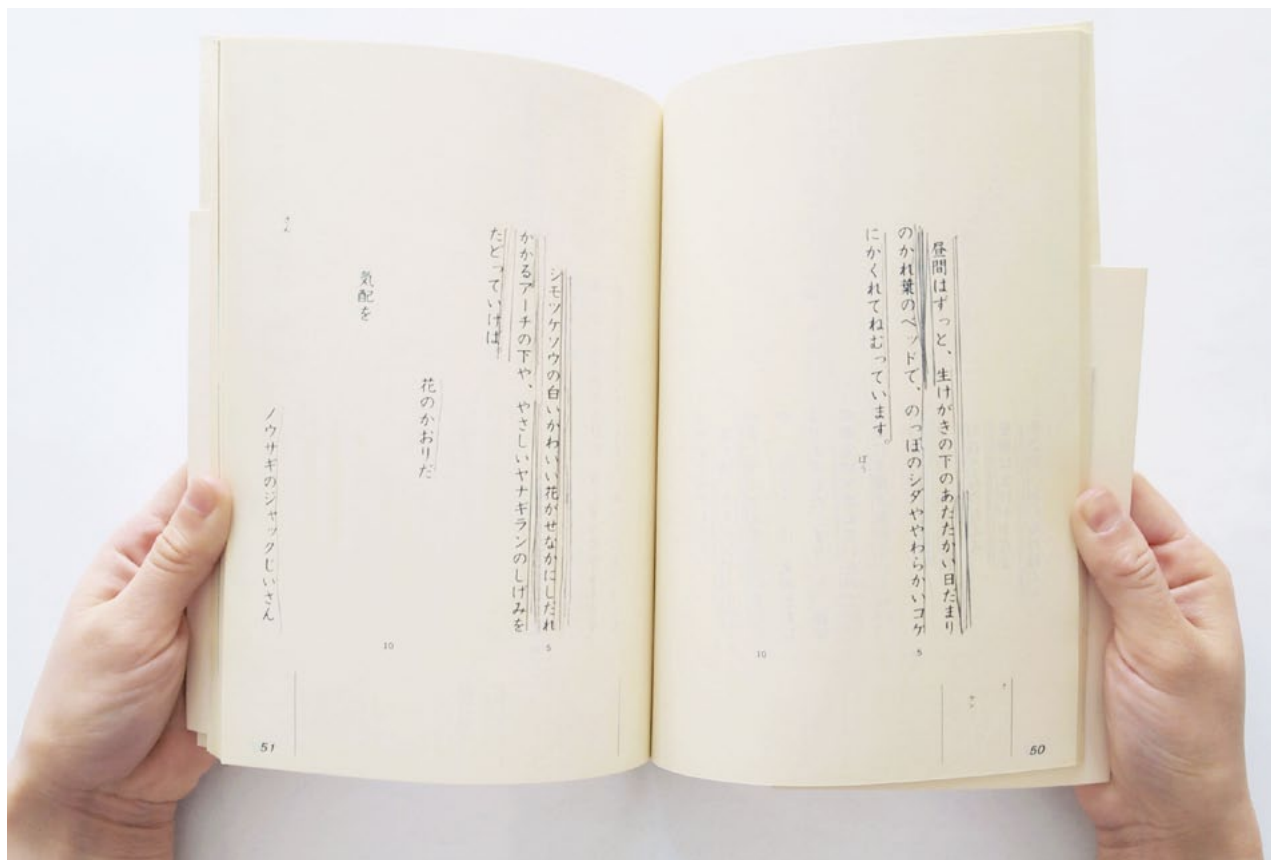 昼間はずっと、生けがきの下のあたたかい日だまり
のかれ葉のベッドで、のっぽのシダややわらかいコケ
にかくれてねむっています。
ぼう
5
10
ケン
50
シモツケソウの白いかわいい花がせなかにしだれ
かかるアーチの下や、やさしいヤナギランのしげみを
たどっていけば。
花のかおりだ
気配を
ノウサギのジャックじいさん
さん
5
10
51